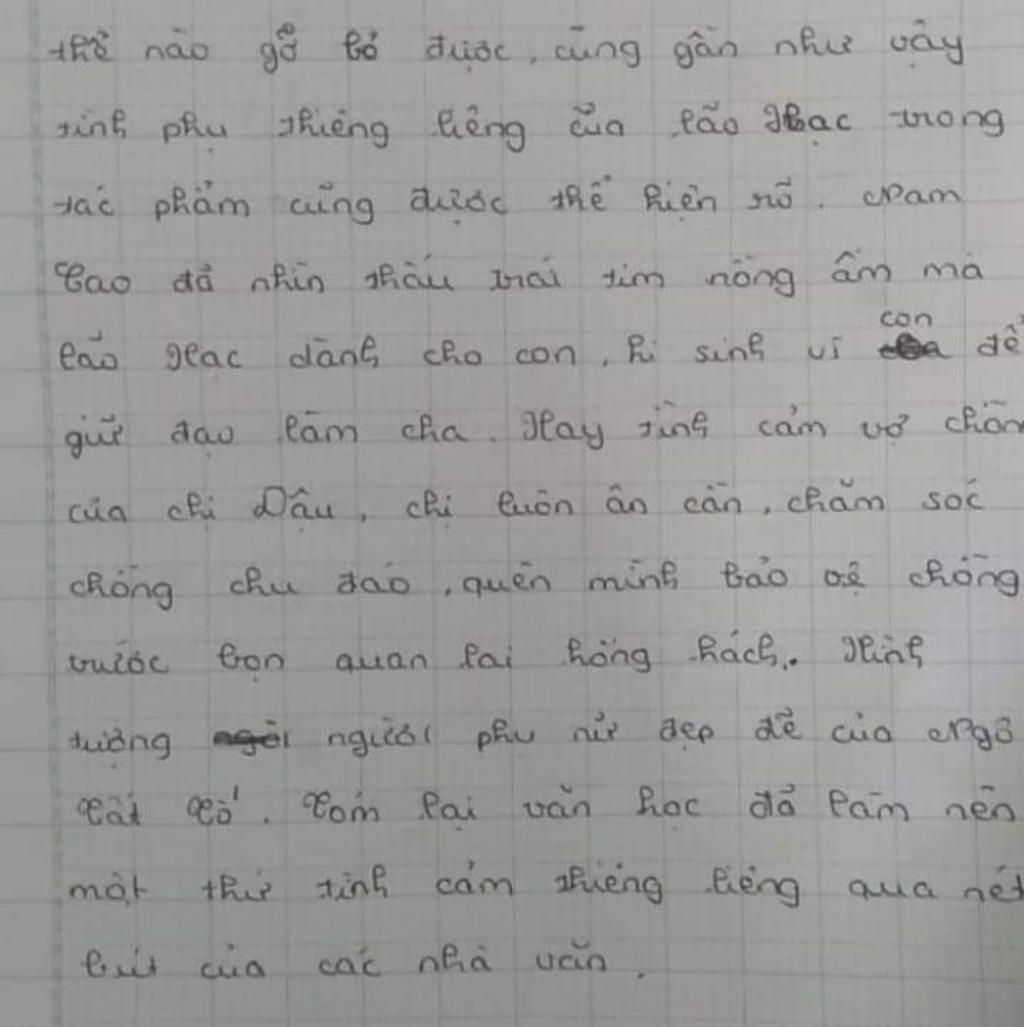 thể nào gỡ bỏ được, cũng gần như vậy
tình phụ thiêng liêng của lão Hạc trong
tác phẩm cũng được thể hiện rõ. Nam
Cao đã nhìn thấu trái tim nồng ấm mà
lão Hạc dành cho con, hi sinh vì con để
giữ đạo làm cha. Hay tình cảm vợ chồn
của chị Dậu, chị luôn ân cần, chăm sóc
chồng chu đáo, quên mình bảo vệ chồng
trước bọn quan lại hống hách. Hình
tượng người phụ nữ đẹp đẽ của Ngô
Tất Tố. Tóm lại văn học đã làm nên
một thứ tình cảm thiêng liêng qua nét
bút của các nhà văn.